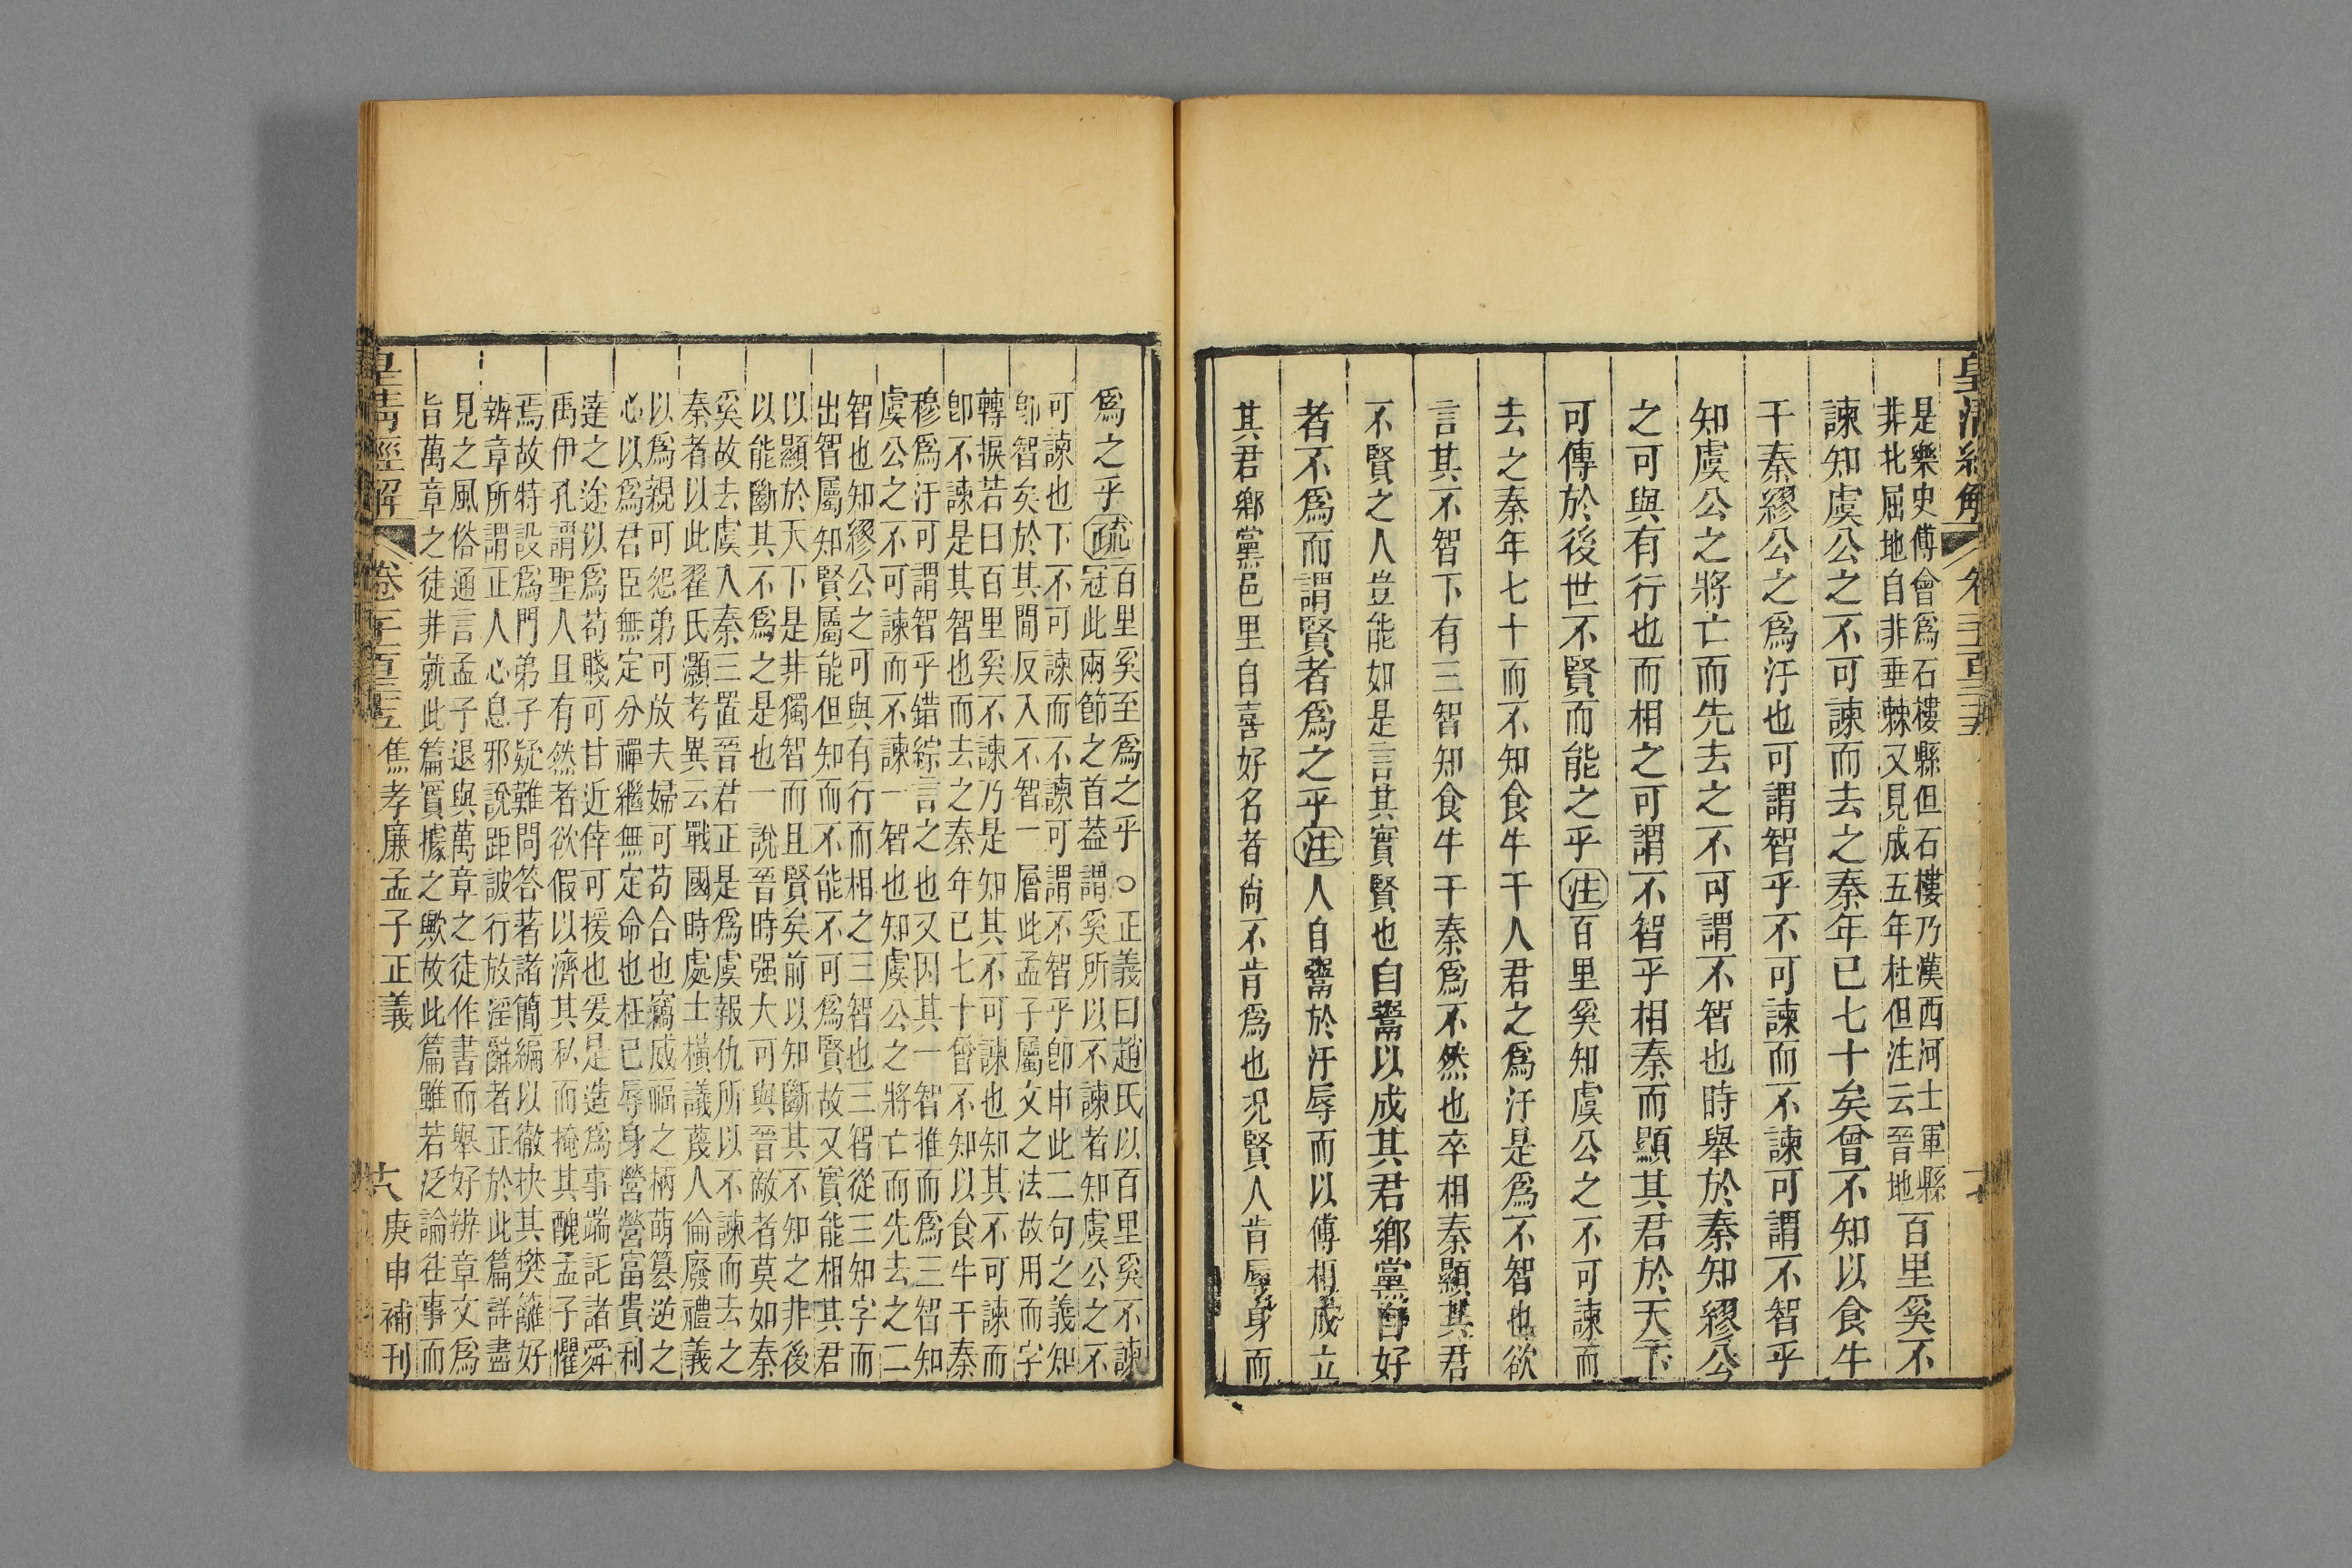 皇清經解
卷千百三十五
是樂史傅會爲石樓縣但石樓乃漢西河士軍縣
非北屈地自非垂棘又見成五年杜但注云晉地
百里奚不
諫知虞公之不可諫而去之秦年已七十矣曾不知以食牛
干秦繆公之爲汙也可謂智乎不可諫而不諫可謂不智乎
知虞公之將亡而先去之不可謂不智也時舉於秦知繆公
之可與有行也而相之可謂不智乎相秦而顯其君於天下
可傳於後世不賢而能之乎注百里奚知虞公之不可諫而
去之秦年七十而不知食牛干人君之爲汙是爲不智也欲
言其不智下有三智知食牛干秦爲不然也卒相秦顯其君
不賢之人豈能如是言其實賢也自鬻以成其君鄉黨自好
者不爲而謂賢者爲之乎注人自鬻於汙辱而以傅相成立
其君鄉黨邑里自喜好名者尚不肯爲也况賢人肯辱身而
爲之乎疏
百里奚至爲之乎○正義曰趙氏以百里奚不諫
冠此兩節之首葢謂奚所以不諫者知虞公之不
可諫也下不可諫而不諫可謂不智乎卽申此二句之義知
卽智矣於其閒反入不智一層此孟子屬文之法故用而字
轉捩若曰百里奚不諫乃是知其不可諫也知其不可諫而
卽不諫是其智也而去之秦年已七十曾不知以食牛干秦
穆爲汙可謂智乎錯綜言之也又因其一智推而爲三智知
虞公之不可諫而不諫一智也知虞公之將亡而先去之二
智也知繆公之可與有行而相之三智也三智從三知字而
出智屬知賢屬能但知而不能不可爲賢故又實能相其君
以顯於天下是非獨智而且賢矣前以知斷其不知之非後
以能斷其不爲之是也一說晉時强大可與晉敵者莫如秦
奚故去虞入秦三置晉君正是爲虞報仇所以不諫而去之
秦者以此翟氏灝考異云戰國時處士橫議蔑人倫廢禮義
以爲親可怨弟可放夫婦可苟合也竊威福之柄萌篡逆之
心以爲君臣無定分禪繼無定命也枉已辱身營營富貴利
達之途以爲苟賤可甘近倖可援也爰是造爲事端託諸舜
禹伊孔謂聖人且有然者欲假以濟其私而掩其醜孟子懼
焉故特設爲門弟子疑難問答著諸簡編以徹抉其樊籬好
辨章所謂正人心息邪說距詖行放淫辭者正於此篇詳盡
見之風俗通言孟子退與萬章之徒作書而舉好辨章文爲
旨萬章之徒非就此篇實據之歟故此篇雖若泛論往事而
皇清經解
卷千百三十五
焦孝廉孟子正義
六
庚申補刊